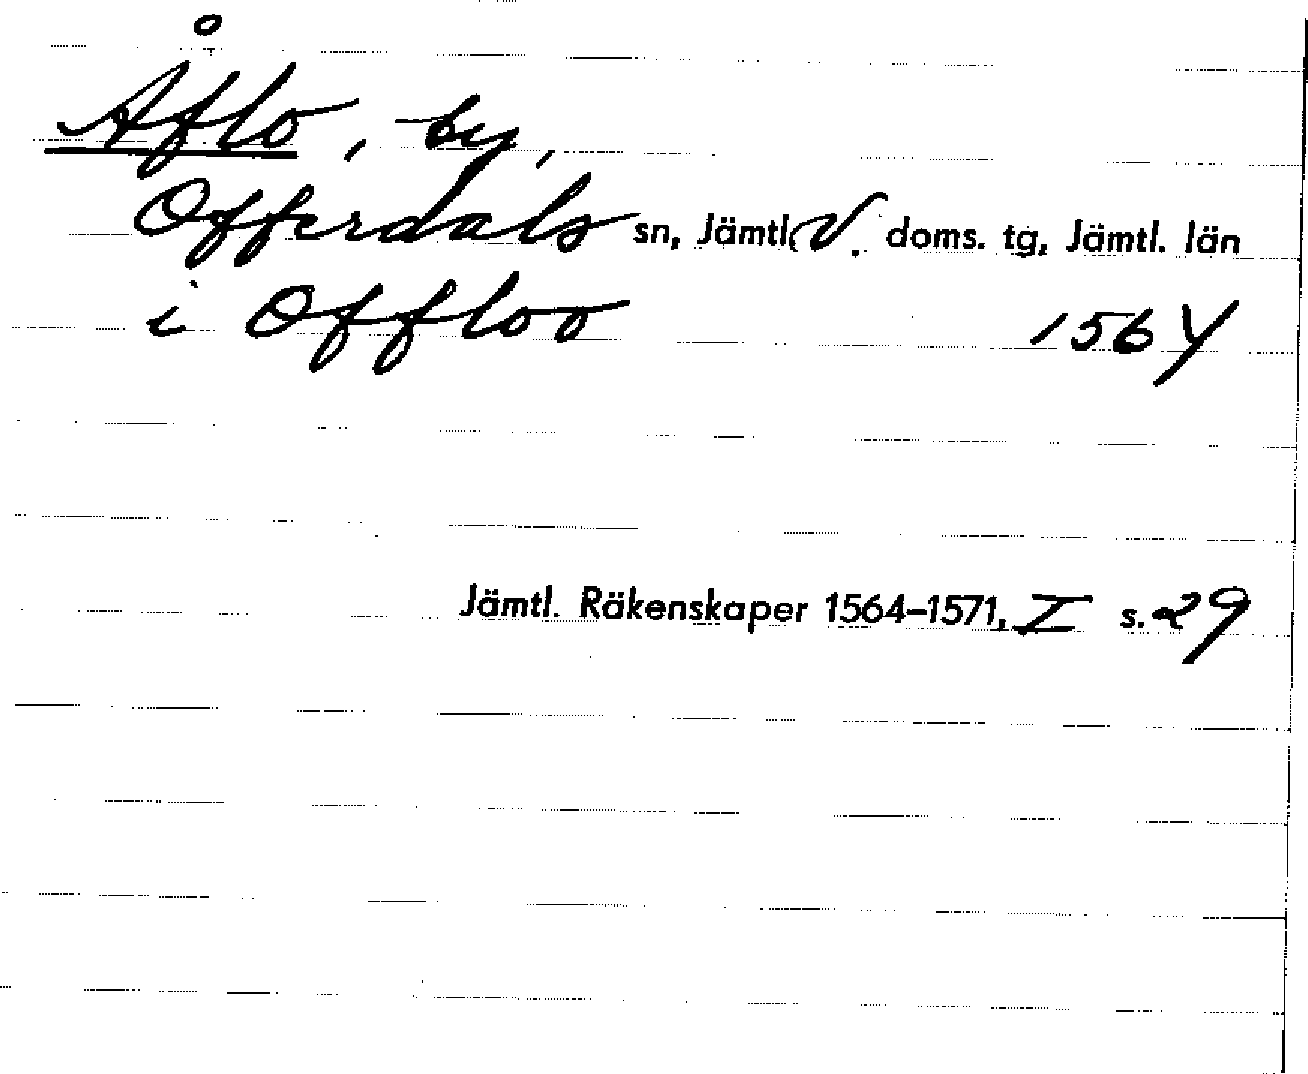 Åflo, by,
Offerdals sn, Jämtl. V. doms. tg, Jämtl. län
i Offloo 1564
Jämtl. Räkenskaper 1564–1571, I s. 29